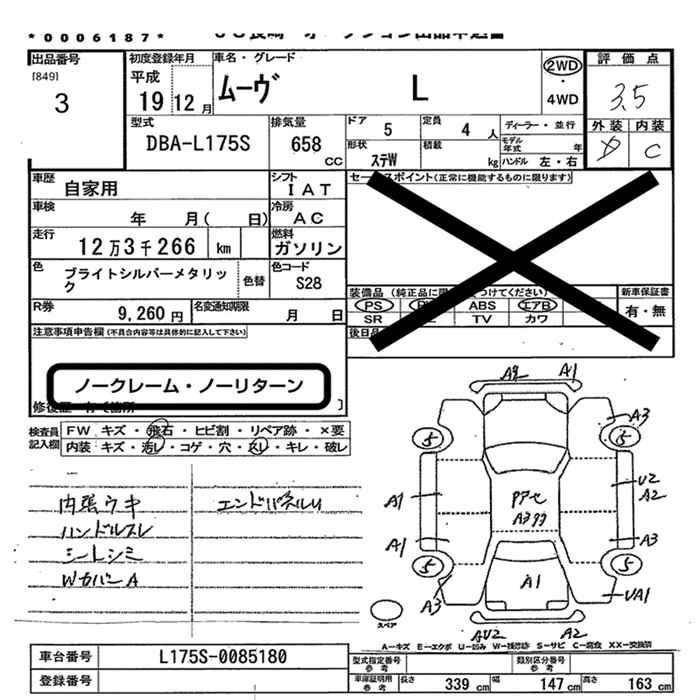 *0006187*
出品番号
[849]
3
初度登録年月
平成
19 12月
車名・グレード
ムーヴ L
2WD
・
4WD
評価点
3.5
外装 内装
D C
型式
DBA-L175S
排気量
658
CC
ドア 5
定員 4 人
形状 ステW
積載 kg
ディーラー・並行
モデル年式 年
ハンドル 左・右
車歴 自家用
シフト IAT
車検 年 月( 日)
冷房 AC
走行 12万3千266 km
燃料 ガソリン
色 ブライトシルバーメタリック
色替
色コード S28
R券 9,260円
名変通知期限 月 日
セールスポイント(正常に機能するものに限ります)
装備品(純正品に限り つけてください)
PS ABS エアB
SR TV カワ
新車保証書
有・無
後日品
注意事項申告欄(不具合内容等は具体的に記入して下さい)
ノークレーム・ノーリターン
修復歴 有〔箇所 〕
検査員記入欄
FW キズ・飛石・ヒビ割・リペア跡・×要
内装・キズ・汚レ・コゲ・穴・スレ・キレ・破レ
内張ウキ エンドパネルU
ハンドルスレ
シートシミ
WカバーA
A2 A1
A3
5 5
U2
A2
A1
PPセ
A3
A1 A3
5 5
A1
A3 UA1
スペア
AU2 A2
A−キズ E−エクボ U−凹み W−補修跡 S−サビ C−腐食 XX−交換済
車台番号 L175S-0085180
登録番号
型式指定番号 参考
類別区分番号 参考
車庫証明用 参考
長さ 339 cm
幅 147 cm
高さ 163 cm